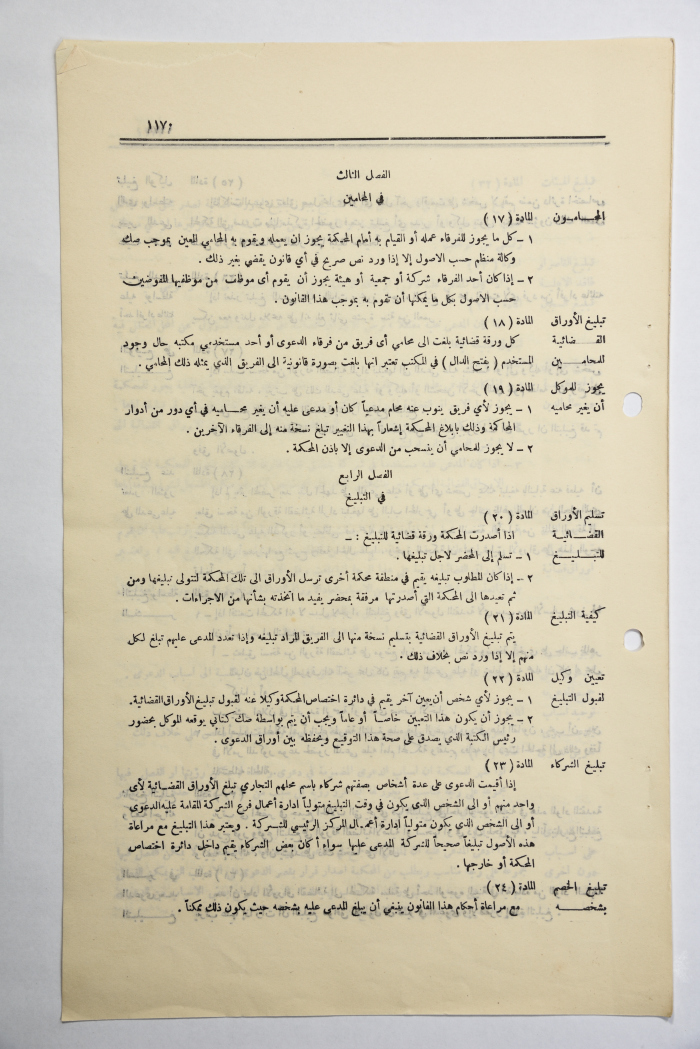 ١١٧٠
الفصل الثالث
في المحامين
المحـــامـــون المادة ( ١٧ )
١ – كل ما يجوز للفرقاء عمله أو القيام به أمام المحكمة يجوز ان يعمله ويقوم به المحامي المعين بموجب صك
وكالة منظم حسب الاصول إلا إذا ورد نص صريح في أي قانون يقضي بغير ذلك .
٢ – إذا كان أحد الفرقاء شركة أو جمعية أو هيئة يجوز أن يقوم أى موظف من موظفيها المفوضين
حسب الاصول بكل ما يمكنها أن تقوم به بموجب هذا القانون .
تبليغ الأوراق المادة ( ١٨ )
القـــضـــائية كل ورقة قضائية بلغت الى محامي أى فريق من فرقاء الدعوى أو أحد مستخدمي مكتبه حال وجود
للمحامـــين المستخدم ( بفتح الدال ) في المكتب تعتبر انها بلغت بصورة قانونية الى الفريق الذي يمثله ذلك المحامي .
يجوز للموكل المادة ( ١٩ )
أن يغير محاميه ١ – يجوز لأي فريق ينوب عنه محام مدعياً كان أو مدعى عليه أن يغير محـــاميه في أي دور من أدوار
المحاكمة وذلك بابلاغ المحكمة إشعاراً بهذا التغيير تبلغ نسخة منه إلى الفرقاء الآخرين .
٢ – لا يجوز للمحامي أن ينسحب من الدعوى إلا باذن المحكمة .
الفصل الرابع
في التبليغ
تسليم الأوراق المادة ( ٢٠ )
القضـــائيـــة اذا أصدرت المحكمة ورقة قضائية للتبليغ : –
للتبـــليـــغ ١ – تسلم إلى المحضر لاجل تبليغها .
٢ – إذا كان المطلوب تبليغه يقيم في منطقة محكمة أخرى ترسل الأوراق الى تلك المحكمة لتتولى تبليغها ومن
ثم تعيدها الى المحكمة التي أصدرتها مرفقة بمحضر يفيد ما اتخذته بشأنها من الاجراءات .
كيفية التبليغ المادة ( ٢١ )
يتم تبليغ الأوراق القضائية بتسليم نسخة منها الى الفريق المراد تبليغه وإذا تعدد المدعى عليهم تبلغ لكل
منهم إلا إذا ورد نص بخلاف ذلك .
تعيين وكيل المادة ( ٢٢ )
لقبول التبليغ ١ – يجوز لأي شخص أن يعين آخر يقيم في دائرة اختصاص المحكمة وكيلا عنه لقبول تبليغ الأوراق القضائية .
٢ – يجوز أن يكون هذا التعيين خاصـــاً أو عاماً ويجب أن يتم بواسطة صك كتابي يوقعه الموكل بحضور
رئيس الكتبة الذي يصدق على صحة هذا التوقيع ويحفظه بين أوراق الدعوى .
تبليغ الشركاء المادة ( ٢٣ )
إذا أقيمت الدعوى على عدة أشخاص بصفتهم شركاء باسم محلهم التجاري تبلغ الأوراق القضـــائية لأى
واحد منهم أو الى الشخص الذى يكون في وقت التبليغ متولياً ادارة أعمال فرع الشركة المقامة عليه الدعوى
أو الى الشخص الذي يكون متولياً إدارة أعمـال المركز الرئيسي للشـــركة . ويعتبر هذا التبليغ مع مراعاة
هذه الأصول تبليغاً صحيحاً للشركة المدعى عليها سواء أكان بعض الشركاء يقيم داخل دائرة اختصاص
المحكمة أو خارجها .
تبليغ الخصم المادة ( ٢٤ )
بشخصـــه مع مراعاة أحكام هذا القانون ينبغي أن يبلغ المدعى عليه بشخصه حيث يكون ذلك ممكناً .